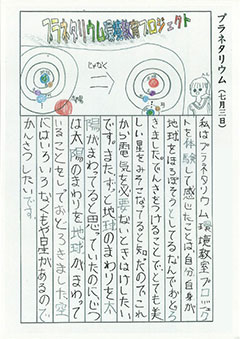 プラネタリウム(七月三日)
プラネタリウム環境教育プロジェクト
じゃなく
私はプラネタリウム環境教室プロジェク
トを体験して感じたことは、自分自身が
地球をほろぼそうとしてるなんておどろ
きました。でんきをつけることで、とても美
しい星をみそこなってると知ったのでこれ
から電気を必要ないときはけしたい
です。またずっと地球のまわりを太
陽がまわってると思っていたのにじつ
は太陽のまわりを地球がまわって
いることをしておどろきました。空
にはいろいろなくもや星があるので
かんさつしたいです。